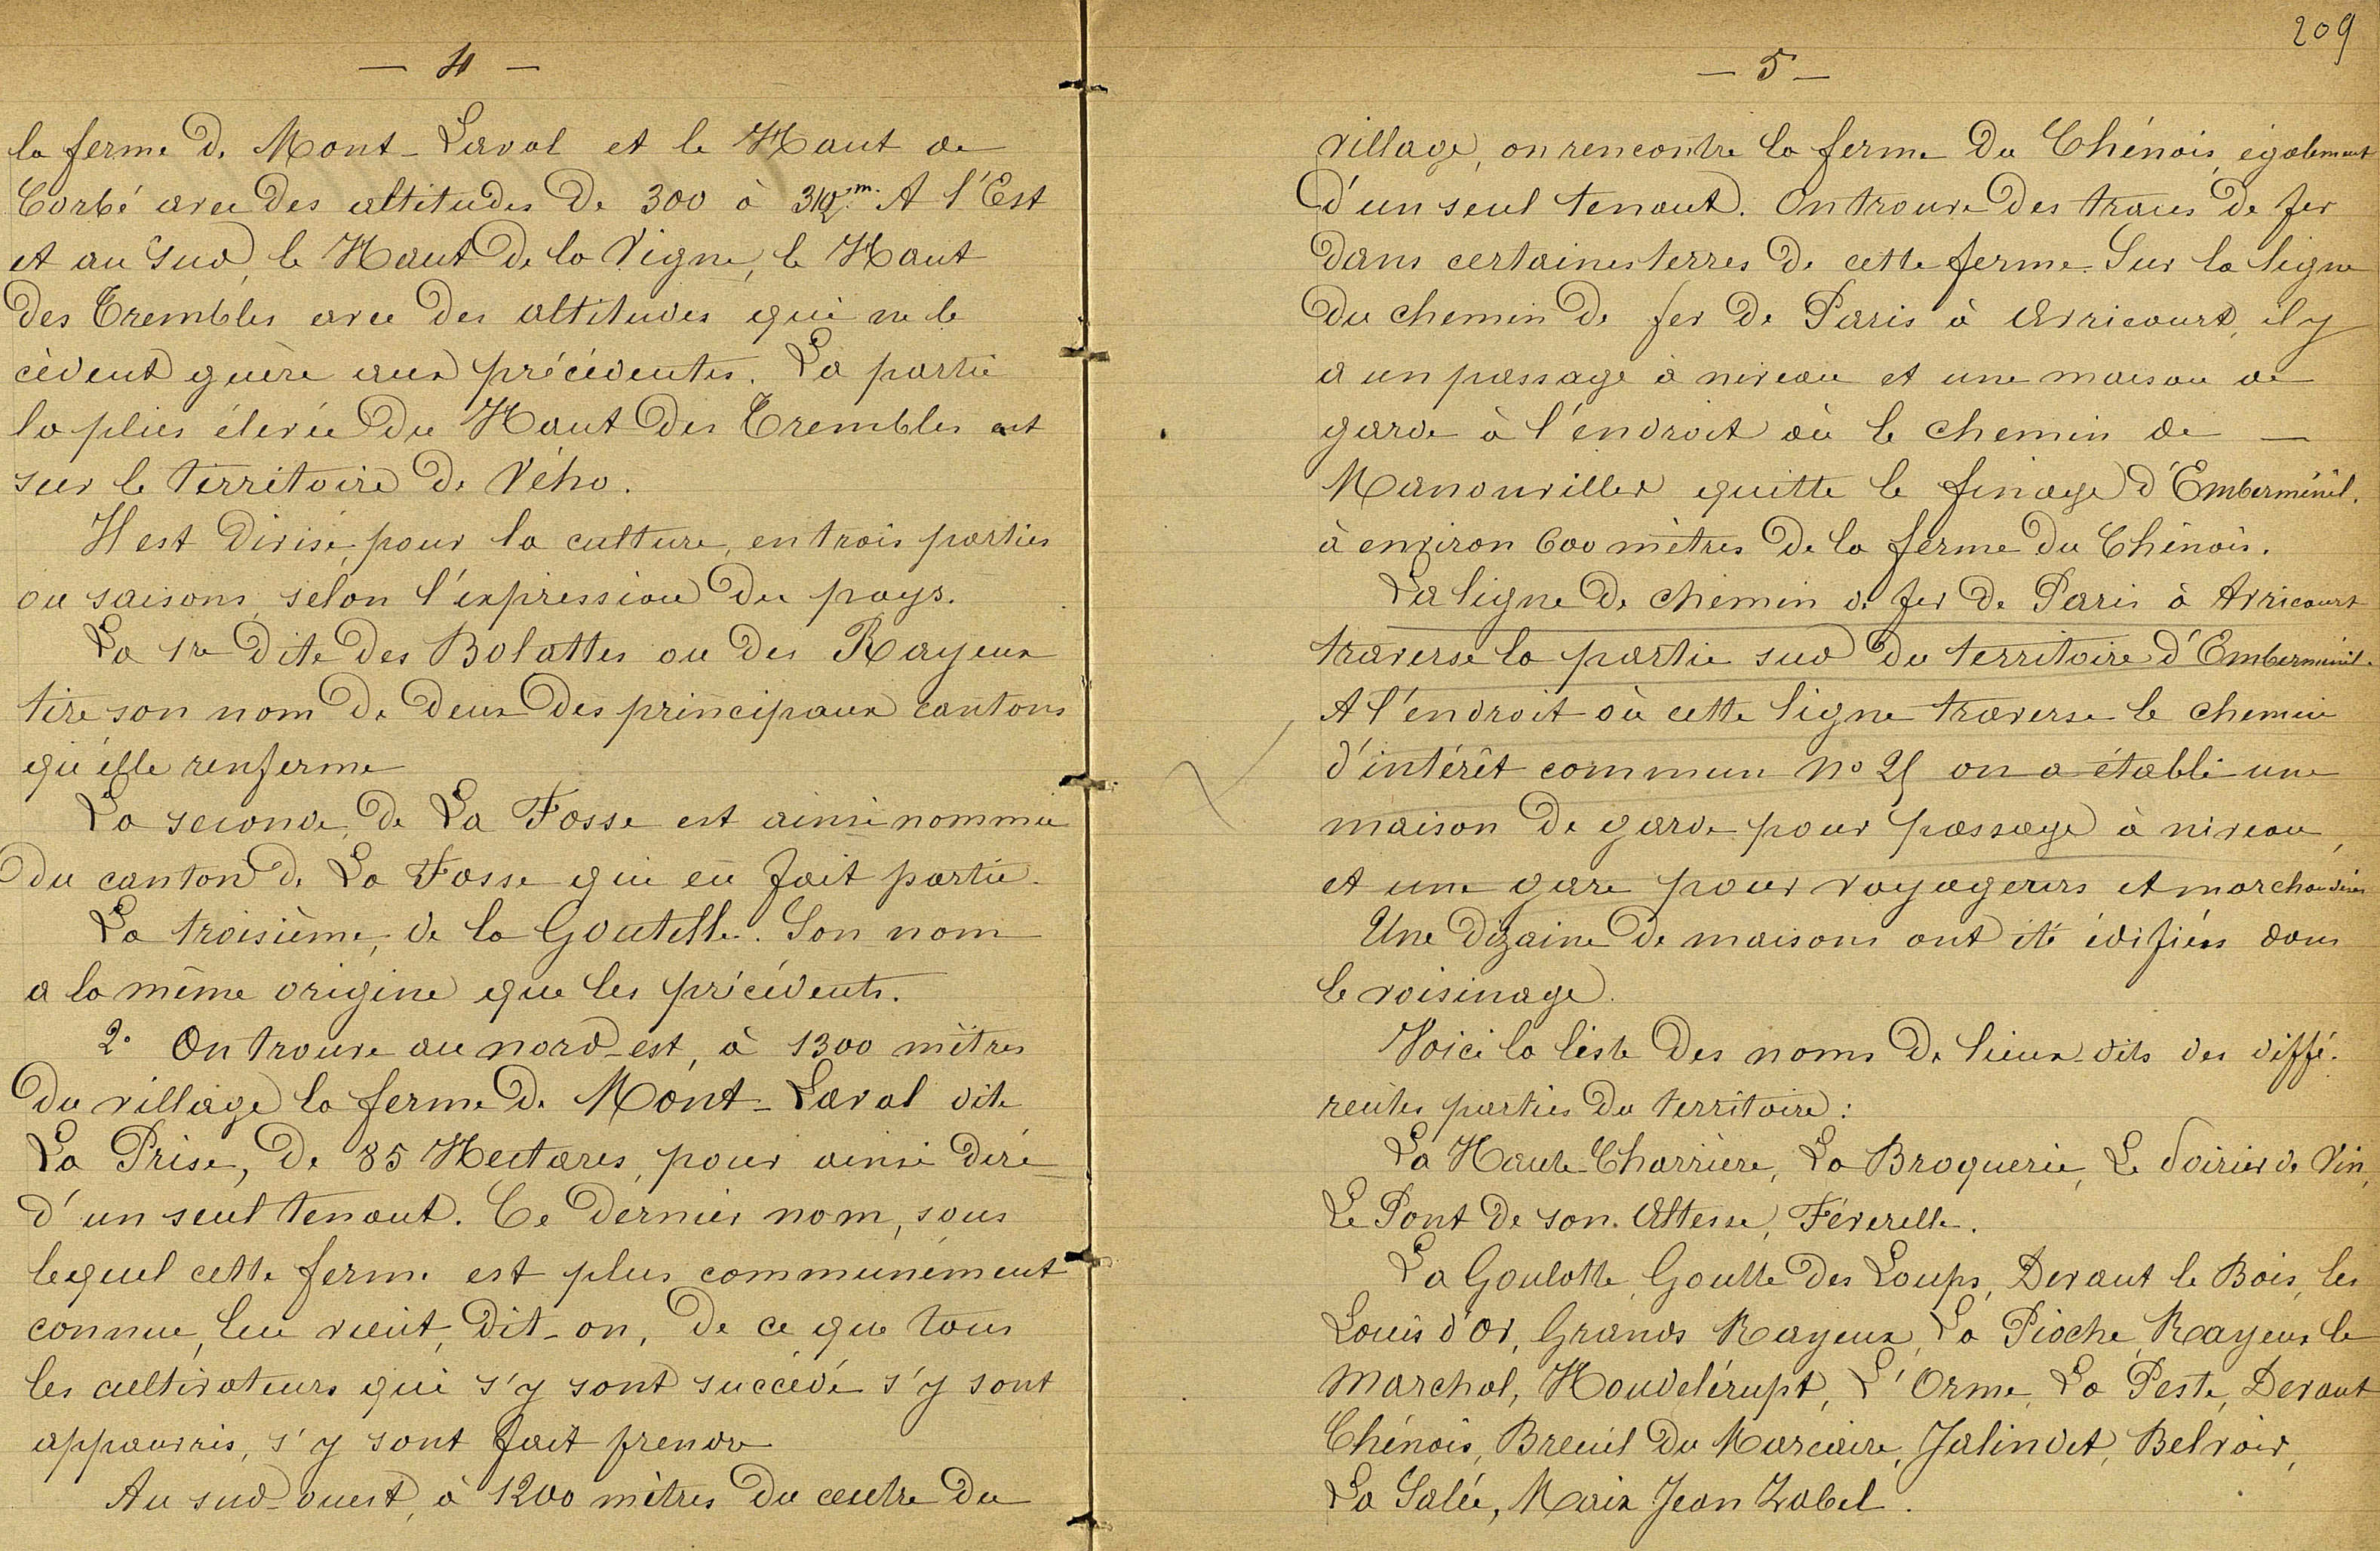 — 4 —
la ferme de Mont-Laval et le Haut de
Corbé avec des altitudes de 300 à 312m. A l'Est
et au Sud, le Haut de la Vigne, le Haut
des Trembles avec des altitudes qui ne le
cèdent guère aux précédentes. La partie
la plus élevée du Haut des Trembles est
sur le territoire de Vého.
Il est divisé, pour la culture, en trois parties
ou saisons, selon l'expression du pays.
La 1re dite des Bolattes ou des Rayeux
tire son nom de deux des principaux cantons
qu'elle renferme
La seconde, de La Fosse est ainsi nommée
du canton de La Fosse qui en fait partie.
La troisième, de la Goutelle. Son nom
a la même origine que les précédents.
2° On trouve au nord-est, à 1300 mètres
du village la ferme de Mont-Laval dite
La Prise, de 85 Hectares, pour ainsi dire
d'un seul tenant. Ce dernier nom, sous
lequel cette ferme est plus communément
connue, lui vient, dit-on, de ce que tous
les cultivateurs qui s'y sont succédé s'y sont
appauvris, s'y sont fait prendre
Au sud-ouest, à 1200 mètres du centre du
209
— 5 —
village, on rencontre la ferme du Chénois, également
d'un seul tenant. On trouve des traces de fer
dans certaines terres de cette ferme. Sur la ligne
du chemin de fer de Paris à Avricourt, il y
a un passage à niveau et une maison de
garde à l'endroit où le chemin de —
Manonviller quitte le finage d'Emberménil.
à environ 600 mètres de la ferme du Chénois.
La ligne de chemin de fer de Paris à Avricourt
traverse la partie sud du territoire d'Emberménil.
A l'endroit où cette ligne traverse le chemin
d'intérêt commun No 25 on a établi une
maison de garde pour passage à niveau,
et une gare pour voyageurs et marchandises
Une dizaine de maisons ont été édifiées dans
le voisinage.
Voici la liste des noms de lieux-dits des diffé-
rentes parties du territoire :
La Haute-Charrière, La Broquerie, Le Poirier de Vin,
Le Pont de son Altesse, Féverelle.
La Goulotte, Goutte des Loups, Devant le Bois, les
Louis d'Or, Grands Rayeux, La Pioche, Rayeux le
Marchal, Houdelérupt, L'Orme, La Peste, Devant
Chénois, Breuil du Marcaire, Jalindet, Belvoir,
La Salée, Maix Jean Zabel.